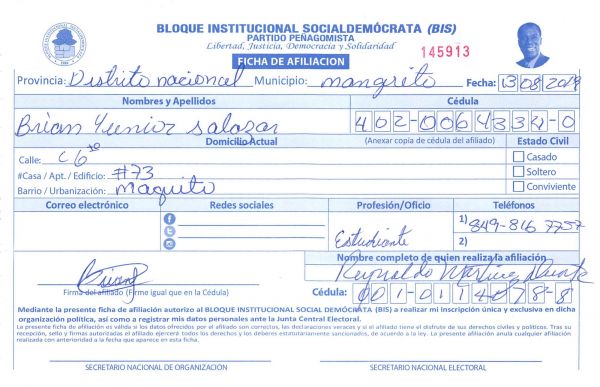 BLOQUE INSTITUCIONAL SOCIALDEMÓCRATA (BIS)
PARTIDO PEÑAGOMISTA
Libertad, Justicia, Democracia y Solidaridad
FICHA DE AFILIACION
145913
Provincia: Distrito nacional Municipio: mangrito Fecha: 13 08 2019
Nombres y Apellidos Cédula
Brian Yunior Salazar 402-0064334-0
Domicilio Actual (Anexar copia de cédula del afiliado) Estado Civil
Calle: C 6 Casado
#Casa / Apt. / Edificio: #73 Soltero
Barrio / Urbanización: maquito Conviviente
Correo electrónico Redes sociales Profesión/Oficio Teléfonos
1) 849-816 7757
Estudiante 2)
Nombre completo de quien realiza la afiliación
Reynaldo Martinez
Firma del afiliado (Firme igual que en la Cédula) Cédula: 001-0114078-8
Mediante la presente ficha de afiliación autorizo al BLOQUE INSTITUCIONAL SOCIAL DEMÓCRATA (BIS) a realizar mi inscripción única y exclusiva en dicha
organización política, así como a registrar mis datos personales ante la Junta Central Electoral.
La presente ficha de afiliación es válida si los datos ofrecidos por el afiliado son correctos, las declaraciones veraces y si el afiliado tiene el disfrute de sus derechos civiles y políticos. Tras su
recepción, sello y firmas autorizadas el afiliado ejercerá todos los derechos y los deberes estatutariamente sancionados, de acuerdo a la ley. La presente afiliación anula cualquier afiliación
realizada con anterioridad a la fecha que aparece en esta ficha.
SECRETARIO NACIONAL DE ORGANIZACIÓN SECRETARIO NACIONAL ELECTORAL